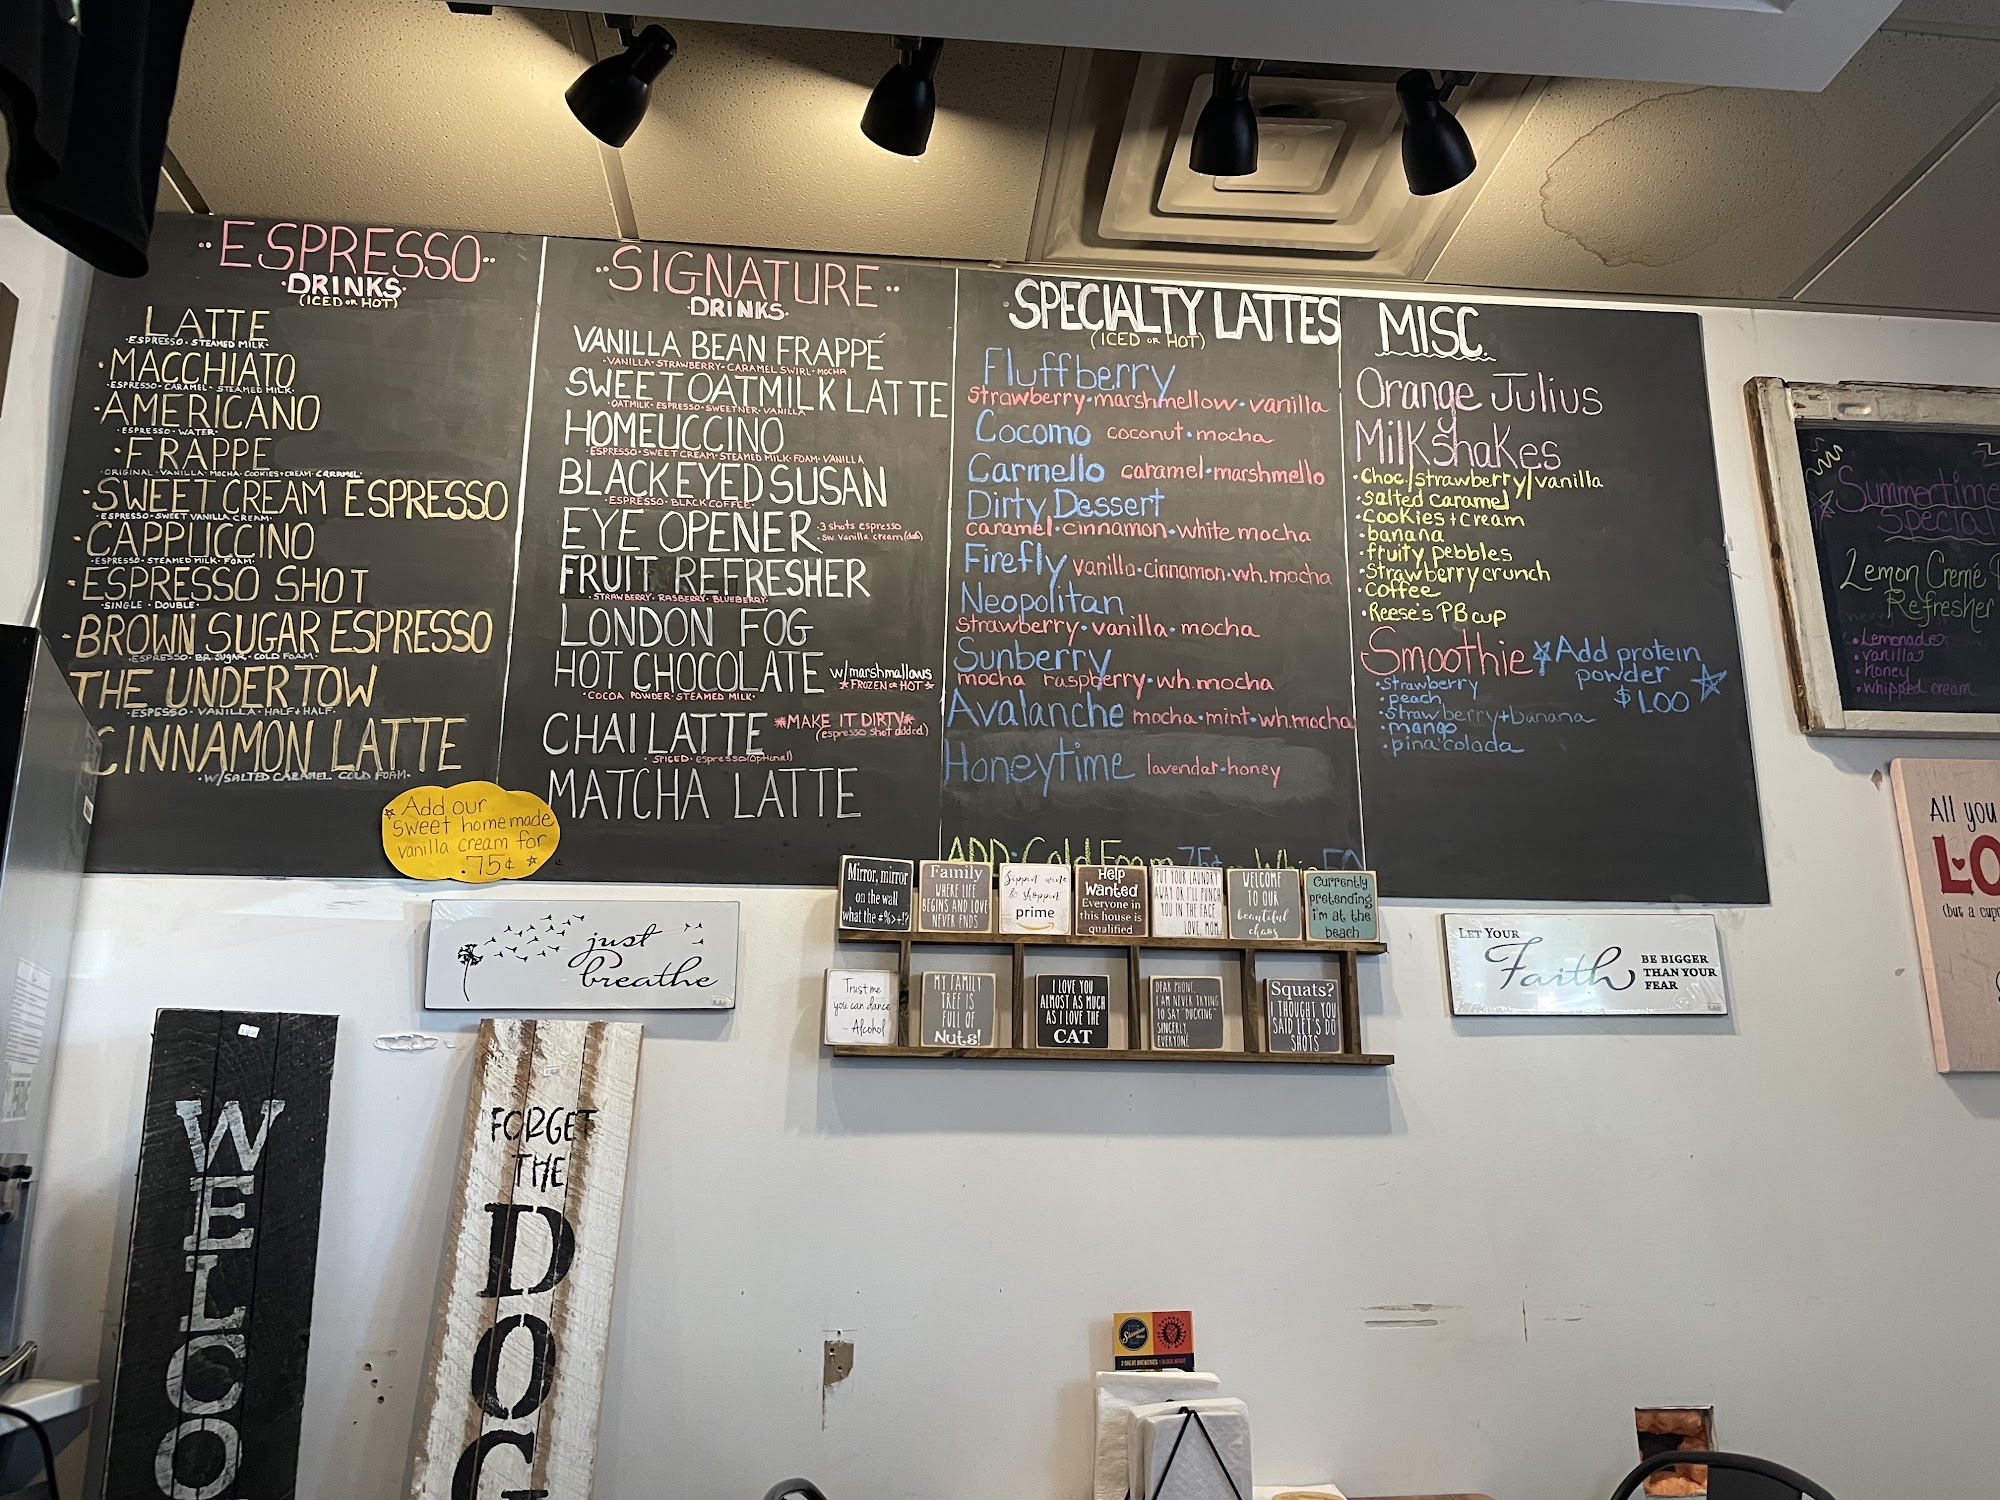 ··ESPRESSO··
·DRINKS·
(ICED OR HOT)
LATTE
·ESPRESSO·STEAMED MILK·
·MACCHIATO
·ESPRESSO·CARAMEL·STEAMED MILK·
·AMERICANO
·ESPRESSO·WATER·
·FRAPPE
·ORIGINAL·VANILLA·MOCHA·COOKIES+CREAM·CARAMEL·
·SWEET CREAM ESPRESSO
·ESPRESSO·SWEET VANILLA CREAM·
·CAPPUCCINO
·ESPRESSO·STEAMED MILK·FOAM·
·ESPRESSO SHOT
·SINGLE·DOUBLE·
·BROWN SUGAR ESPRESSO
·ESPRESSO·BR SUGAR·COLD FOAM·
THE UNDERTOW
·ESPESSO·VANILLA·HALF+HALF·
CINNAMON LATTE
·W/SALTED CARAMEL COLD FOAM·
Add our
sweet homemade
vanilla cream for
.75¢
··SIGNATURE··
·DRINKS·
VANILLA BEAN FRAPPÉ
·VANILLA·STRAWBERRY·CARAMEL SWIRL·MOCHA
SWEET OATMILK LATTE
·OATMILK·ESPRESSO·SWEETNER·VANILLA
HOMEUCCINO
·ESPRESSO·SWEET CREAM·STEAMED MILK·FOAM·VANILLA
BLACK EYED SUSAN
·ESPRESSO·BLACK COFFEE·
EYE OPENER ·3 shots espresso
·sw vanilla cream
FRUIT REFRESHER
·STRAWBERRY·RASBERRY·BLUEBERRY·
LONDON FOG
HOT CHOCOLATE w/marshmallows
·COCOA POWDER·STEAMED MILK· ★FROZEN OR HOT★
CHAI LATTE *MAKE IT DIRTY*
(espresso shot added)
·SPICED·espresso(optional)
MATCHA LATTE
SPECIALTY LATTES
(ICED OR HOT)
Fluffberry
strawberry·marshmellow·vanilla
Cocomo coconut·mocha
Carmello caramel·marshmello
Dirty Dessert
caramel·cinnamon·white mocha
Firefly vanilla·cinnamon·wh.mocha
Neopolitan
strawberry·vanilla·mocha
Sunberry
mocha raspberry·wh.mocha
Avalanche mocha·mint·wh.mocha
Honeytime lavendar·honey
ADD: Cold Foam 75¢
MISC.
Orange Julius
Milkshakes
·Choc/strawberry/vanilla
·salted caramel
·cookies+cream
·banana
·fruity pebbles
·strawberry crunch
·coffee
·Reese's PB cup
Smoothie
·strawberry
·peach
·strawberry+banana
·mango
·pina colada
Add protein
powder
$1.00
Summertime
Special
Lemon Cremé
Refresher
·Lemonade
·vanilla
·honey
·whipped cream
All you
LO
(but a cup
Mirror, mirror
on the wall
what the #%>+!?
Family
WHERE LIFE
BEGINS AND LOVE
NEVER ENDS
Sippin' wine
& shoppin'
prime
Help
Wanted
Everyone in
this house is
qualified
PUT YOUR LAUNDRY
AWAY OR I'LL PUNCH
YOU IN THE FACE.
LOVE, MOM
WELCOME
TO OUR
beautiful
chaos
Currently
pretending
i'm at the
beach
Trust me
you can dance
- Alcohol
MY FAMILY
TREE IS
FULL OF
Nuts!
I LOVE YOU
ALMOST AS MUCH
AS I LOVE THE
CAT
DEAR PHONE,
I AM NEVER TRYING
TO SAY "DUCKING"
SINCERLY,
EVERYONE
Squats?
I THOUGHT YOU
SAID LET'S DO
SHOTS
just
breathe
LET YOUR
Faith
BE BIGGER
THAN YOUR
FEAR
WELCO
FORGET
THE
DOG